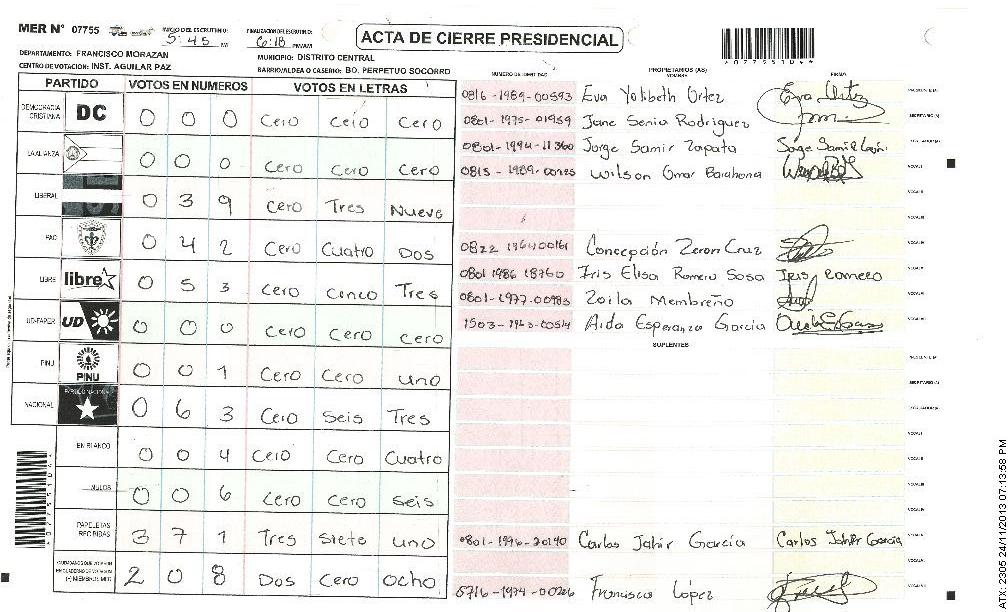 MER Nº 07755
INICIO DEL ESCRUTINIO: 5:45 PM
FINALIZACION DEL ESCRUTINIO: 6:18 PM/AM
ACTA DE CIERRE PRESIDENCIAL
DEPARTAMENTO: FRANCISCO MORAZAN
MUNICIPIO: DISTRITO CENTRAL
CENTRO DE VOTACION: INST. AGUILAR PAZ
BARRIO/ALDEA O CASERIO: BO. PERPETUO SOCORRO
PARTIDO VOTOS EN NUMEROS VOTOS EN LETRAS
DEMOCRACIA CRISTIANA DC 0 0 0 Cero Cero Cero
LA ALIANZA 0 0 0 Cero Cero Cero
LIBERAL 0 3 9 Cero Tres Nueve
PAC 0 4 2 Cero Cuatro Dos
LIBRE libre 0 5 3 Cero Cinco Tres
UD-FAPER UD 0 0 0 Cero Cero Cero
PINU PINU 0 0 1 Cero Cero uno
NACIONAL 0 6 3 Cero Seis Tres
EN BLANCO 0 0 4 Cero Cero Cuatro
NULOS 0 0 6 Cero Cero Seis
PAPELETAS RECIBIDAS 3 7 1 Tres Siete uno
2 0 8 Dos Cero Ocho
NUMERO DE IDENTIDAD PROPIETARIOS (AS) NOMBRE FIRMA
0816-1989-00593 Eva Yolibeth Ortez Eva Ortez
0801-1975-01959 Jane Senia Rodriguez
0801-1994-11360 Jorge Samir Zapata
0815-1989-00125 Wilson Omar Barahona
Concepción Zeron Cruz
0801 1986 18760 Iris Elisa Romero Sosa Iris Romero
0801-1977-00983 Zoila Membreño
Aida Esperanza Garcia
SUPLENTES
0801-1996-20140 Carlos Jahir Garcia Carlos Jahir Garcia
Francisco López
ATX 2305 24/11/2013 07:13:58 PM